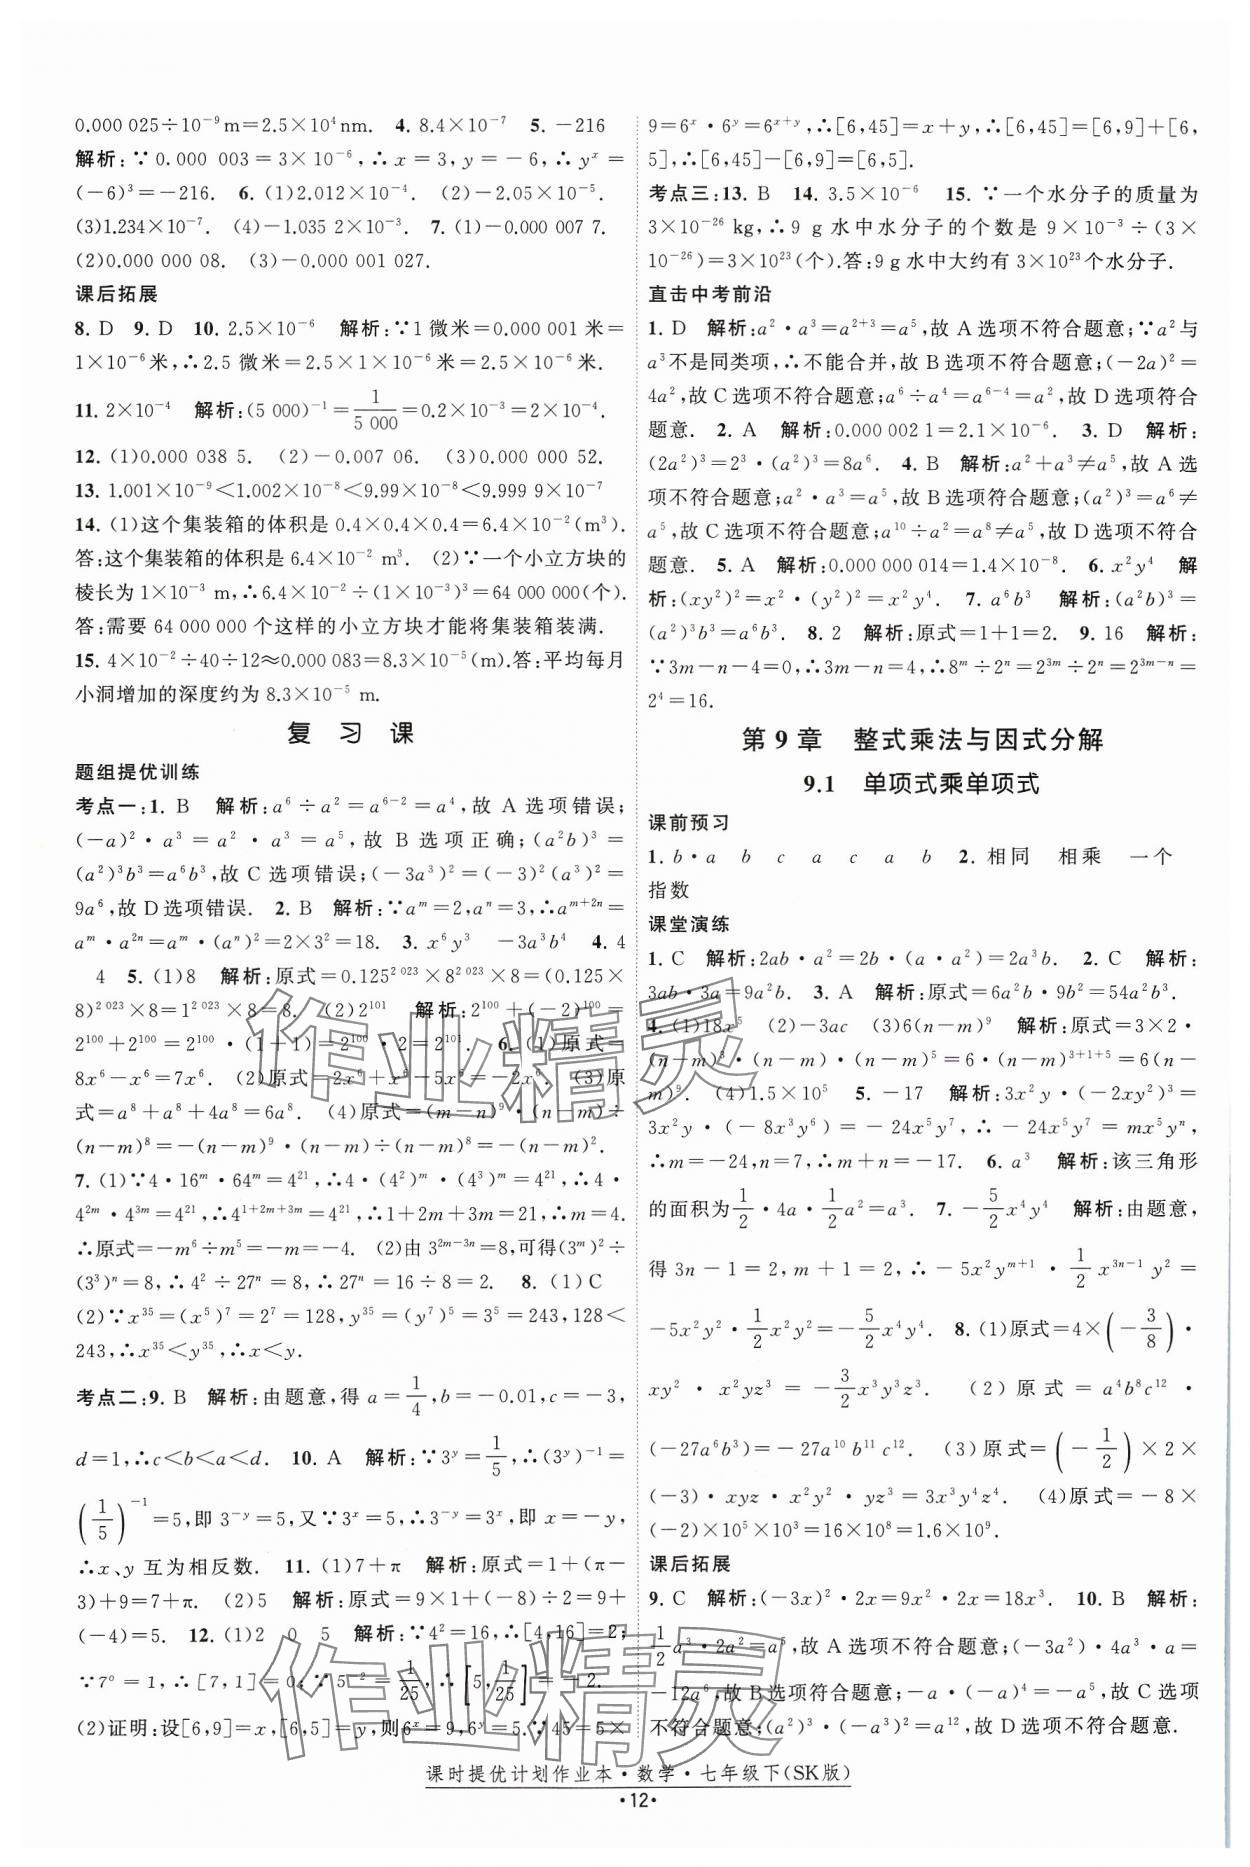 0.000 025÷10⁻⁹m=2.5×10⁴nm. 4. 8.4×10⁻⁷ 5. -216
解析:∵0.000 003=3×10⁻⁶,∴x=3,y=-6,∴yˣ=
(-6)³=-216. 6. (1)2.012×10⁻⁴. (2)-2.05×10⁻⁵.
(3)1.234×10⁻⁷. (4)-1.035 2×10⁻³. 7. (1)-0.000 007 7.
(2)0.000 000 08. (3)-0.000 001 027.
课后拓展
8. D 9. D 10. 2.5×10⁻⁶ 解析:∵1微米=0.000 001米=
1×10⁻⁶米,∴2.5微米=2.5×1×10⁻⁶米=2.5×10⁻⁶米.
11. 2×10⁻⁴ 解析:(5 000)⁻¹=1/5 000=0.2×10⁻³=2×10⁻⁴.
12. (1)0.000 038 5. (2)-0.007 06. (3)0.000 000 52.
13. 1.001×10⁻⁹<1.002×10⁻⁸<9.99×10⁻⁸<9.999 9×10⁻⁷
14. (1)这个集装箱的体积是0.4×0.4×0.4=6.4×10⁻²(m³).
答:这个集装箱的体积是6.4×10⁻² m³. (2)∵一个小立方块的
棱长为1×10⁻³ m,∴6.4×10⁻²÷(1×10⁻³)³=64 000 000(个).
答:需要64 000 000个这样的小立方块才能将集装箱装满.
15. 4×10⁻²÷40÷12≈0.000 083=8.3×10⁻⁵(m).答:平均每月
小洞增加的深度约为8.3×10⁻⁵ m.
复 习 课
题组提优训练
考点一:1. B 解析:a⁶÷a²=a⁶⁻²=a⁴,故A选项错误;
(-a)²·a³=a²·a³=a⁵,故B选项正确;(a²b)³=
(a²)³b³=a⁶b³,故C选项错误;(-3a³)²=(-3)²(a³)²=
9a⁶,故D选项错误. 2. B 解析:∵aᵐ=2,aⁿ=3,∴aᵐ⁺²ⁿ=
aᵐ·a²ⁿ=aᵐ·(aⁿ)²=2×3²=18. 3. x⁶y³ -3a³b⁴ 4. 4
4 5. (1)8 解析:原式=0.125²⁰²³×8²⁰²³×8=(0.125×
8)²⁰²³×8=1²⁰²³×8=8. (2)2¹⁰¹ 解析:2¹⁰⁰+(-2)¹⁰⁰=
2¹⁰⁰+2¹⁰⁰=2¹⁰⁰·(1+1)=2¹⁰⁰·2=2¹⁰¹. 6. (1)原式=
8x⁶-x⁶=7x⁶. (2)原式=2x⁶+x⁶-5x⁶=-2x⁶. (3)原
式=a⁸+a⁸+4a⁸=6a⁸. (4)原式=(m-n)⁹·(n-m)÷
(n-m)⁸=-(n-m)⁹·(n-m)÷(n-m)⁸=-(n-m)².
7. (1)∵4·16ᵐ·64ᵐ=4²¹,∴4·(4²)ᵐ·(4³)ᵐ=4²¹,∴4·
4²ᵐ·4³ᵐ=4²¹,∴4¹⁺²ᵐ⁺³ᵐ=4²¹,∴1+2m+3m=21,∴m=4.
∴原式=-m⁶÷m⁵=-m=-4. (2)由3²ᵐ⁻³ⁿ=8,可得(3ᵐ)²÷
(3³)ⁿ=8,∴4²÷27ⁿ=8,∴27ⁿ=16÷8=2. 8. (1)C
(2)∵x³⁵=(x⁵)⁷=2⁷=128,y³⁵=(y⁷)⁵=3⁵=243,128<
243,∴x³⁵<y³⁵,∴x<y.
考点二:9. B 解析:由题意,得a=1/4,b=-0.01,c=-3,
d=1,∴c<b<a<d. 10. A 解析:∵3ʸ=1/5,∴(3ʸ)⁻¹=
(1/5)⁻¹=5,即3⁻ʸ=5,又∵3ˣ=5,∴3⁻ʸ=3ˣ,即x=-y,
∴x、y互为相反数. 11. (1)7+π 解析:原式=1+(π-
3)+9=7+π. (2)5 解析:原式=9×1+(-8)÷2=9+
(-4)=5. 12. (1)2 0 5 解析:∵4²=16,∴[4,16]=2;
∵7⁰=1,∴[7,1]=0;∵5⁻²=1/25,∴[5,1/25]=-2.
(2)证明:设[6,9]=x,[6,5]=y,则6ˣ=9,6ʸ=5.∵45=5×
9=6ˣ·6ʸ=6ˣ⁺ʸ,∴[6,45]=x+y,∴[6,45]=[6,9]+[6,
5],∴[6,45]-[6,9]=[6,5].
考点三:13. B 14. 3.5×10⁻⁶ 15. ∵一个水分子的质量为
3×10⁻²⁶ kg,∴9 g水中水分子的个数是9×10⁻³÷(3×
10⁻²⁶)=3×10²³(个).答:9 g水中大约有3×10²³个水分子.
直击中考前沿
1. D 解析:a²·a³=a²⁺³=a⁵,故A选项不符合题意;∵a²与
a³不是同类项,∴不能合并,故B选项不符合题意;(-2a)²=
4a²,故C选项不符合题意;a⁶÷a⁴=a⁶⁻⁴=a²,故D选项符合
题意. 2. A 解析:0.000 002 1=2.1×10⁻⁶. 3. D 解析:
(2a²)³=2³·(a²)³=8a⁶. 4. B 解析:a²+a³≠a⁵,故A选
项不符合题意;a²·a³=a⁵,故B选项符合题意;(a²)³=a⁶≠
a⁵,故C选项不符合题意;a¹⁰÷a²=a⁸≠a⁵,故D选项不符合
题意. 5. A 解析:0.000 000 014=1.4×10⁻⁸. 6. x²y⁴ 解
析:(xy²)²=x²·(y²)²=x²y⁴. 7. a⁶b³ 解析:(a²b)³=
(a²)³b³=a⁶b³. 8. 2 解析:原式=1+1=2. 9. 16 解析:
∵3m-n-4=0,∴3m-n=4,∴8ᵐ÷2ⁿ=2³ᵐ÷2ⁿ=2³ᵐ⁻ⁿ=
2⁴=16.
第9章 整式乘法与因式分解
9.1 单项式乘单项式
课前预习
1. b·a b c a c a b 2. 相同 相乘 一个
指数
课堂演练
1. C 解析:2ab·a²=2b·(a·a²)=2a³b. 2. C 解析:
3ab·3a=9a²b. 3. A 解析:原式=6a²b·9b²=54a²b³.
4. (1)18x⁵ (2)-3ac (3)6(n-m)⁹ 解析:原式=3×2·
(n-m)³·(n-m)·(n-m)⁵=6·(n-m)³⁺¹⁺⁵=6(n-
m)⁹. (4)1.5×10⁵ 5. -17 解析:3x²y·(-2xy²)³=
3x²y·(-8x³y⁶)=-24x⁵y⁷,∴-24x⁵y⁷=mx⁵yⁿ,
∴m=-24,n=7,∴m+n=-17. 6. a³ 解析:该三角形
的面积为1/2·4a·1/2a²=a³. 7. -5/2x⁴y⁴ 解析:由题意,
得3n-1=2,m+1=2,∴-5x²yᵐ⁺¹·1/2x³ⁿ⁻¹y²=
-5x²y²·1/2x²y²=-5/2x⁴y⁴. 8. (1)原式=4×(-3/8)·
xy²·x²yz³=-3/2x³y³z³. (2)原式=a⁴b⁸c¹²·
(-27a⁶b³)=-27a¹⁰b¹¹c¹². (3)原式=(-1/2)×2×
(-3)·xyz·x²y²·yz³=3x³y⁴z⁴. (4)原式=-8×
(-2)×10⁵×10³=16×10⁸=1.6×10⁹.
课后拓展
9. C 解析:(-3x)²·2x=9x²·2x=18x³. 10. B 解析:
1/2a³·2a²=a⁵,故A选项不符合题意;(-3a²)·4a³·a=
-12a⁶,故B选项符合题意;-a·(-a)⁴=-a⁵,故C选项
不符合题意;(a²)³·(-a³)²=a¹²,故D选项不符合题意.
课时提优计划作业本·数学·七年级下(SK版)
·12·
作业精灵
作业精灵